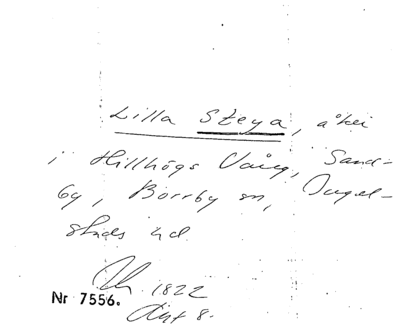 Lilla Steya, åker
i Hillhögs Vång, Sand-
by, Borrby sn, Ingel-
stads hd
1822
Nr 7556. Akt 8.